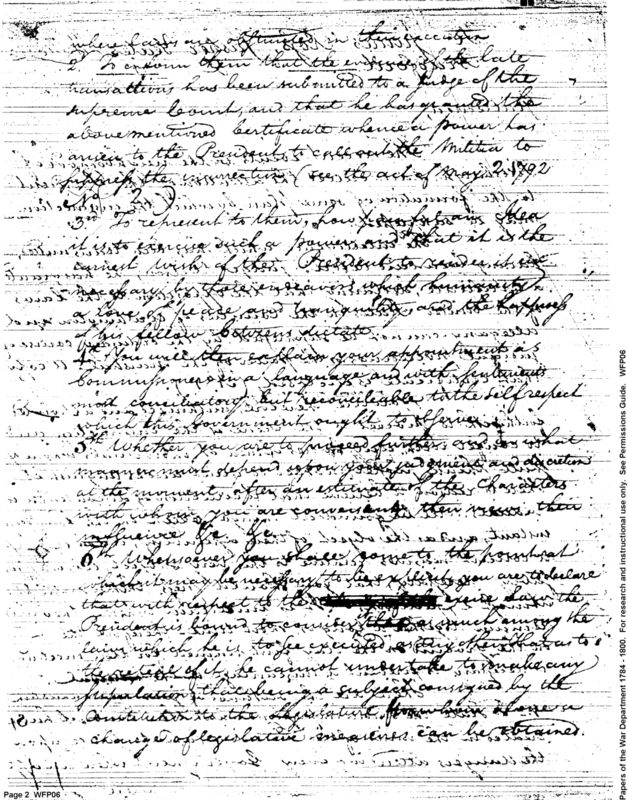 where laws are obstructed in their execution
2. To inform them that the evidence of the late
transactions has been submitted to a Judge of the
supreme Court, and that he has granted the
abovementioned Certificate whence a power has
arisen to the President to call out the Militia to
suppress the insurrection (see the act of May 2. 1792
3d To represent to them, how painful an Idea
it is to exercise such a power and that it is the
earnest wish of the President to render it un
necessary by those endeavors which humanity
a love of peace and tranquility and the happiness
of his fellow Citizens dictate.
4th You will then explain your appointment as
Commissioners in a language and with sentiments
most conciliatory but reconcileable to the self respect
which this Government ought to observe
5th Whether you are to proceed further and in what
manner must depend upon your judgment and discretion
at the moment after an estimate of the Characters
with whom you are conversing their views their
influence &c &c
6th Whensoever you shall come to the point at
which it may be necessary to be explicit you are to declare
that with respect to the excise Laws the
President is bound to consider as much among the
Laws which he is to see executed as any other That as to
the repeal of it he cannot undertake to make any
stipulation, that being a subject consigned by the
Constitution to the Legislature from whom alone a
change of legislative measures can be obtained.
Page 2 WFP06
Papers of the War Department 1784 - 1800. For research and instructional use only. See Permissions Guide. WFP06